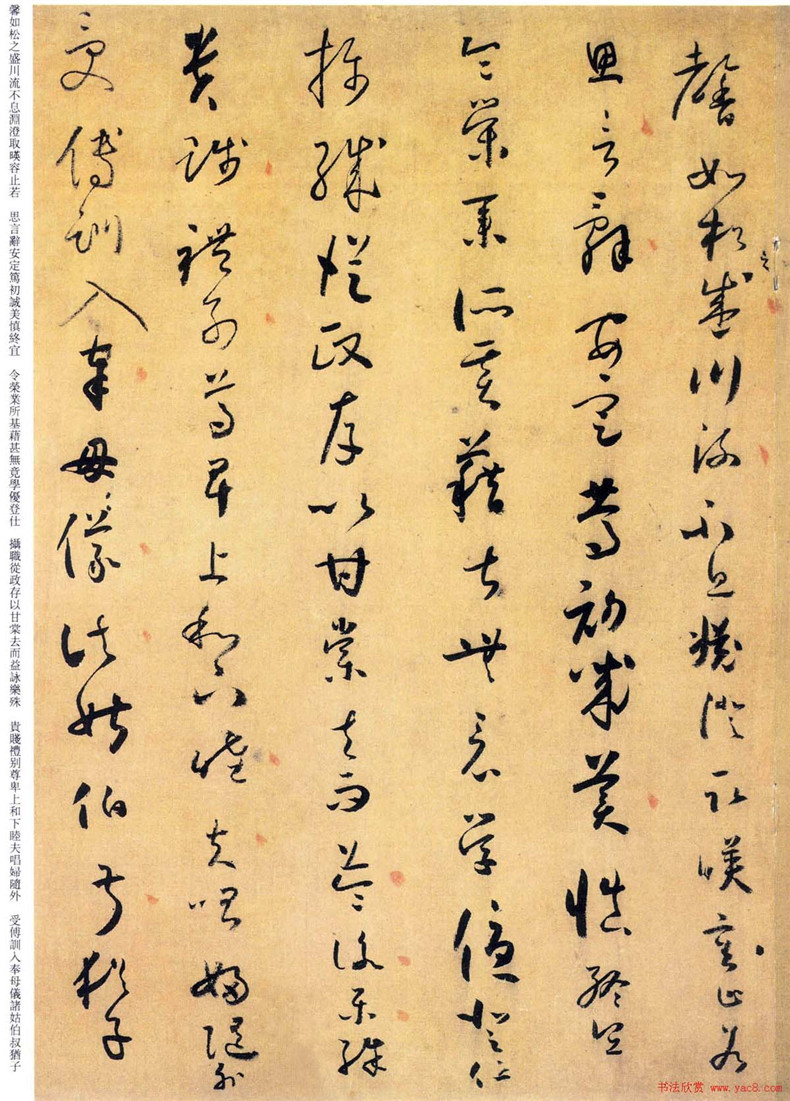 馨如松之盛川流不息淵澄取暎容止若
思言辭安定篤初誠美慎終宜
令榮業所基藉甚無竟學優登仕
攝職從政存以甘棠去而益詠樂殊
貴賤禮別尊卑上和下睦夫唱婦隨外
受傅訓入奉母儀諸姑伯叔猶子
馨如松之盛川流不息淵澄取暎容止若 思言辭安定篤初誠美慎終宜 令榮業所基藉甚無竟學優登仕 攝職從政存以甘棠去而益詠樂殊 貴賤禮別尊卑上和下睦夫唱婦隨外 受傅訓入奉母儀諸姑伯叔猶子
书法欣赏 www.yac8.com